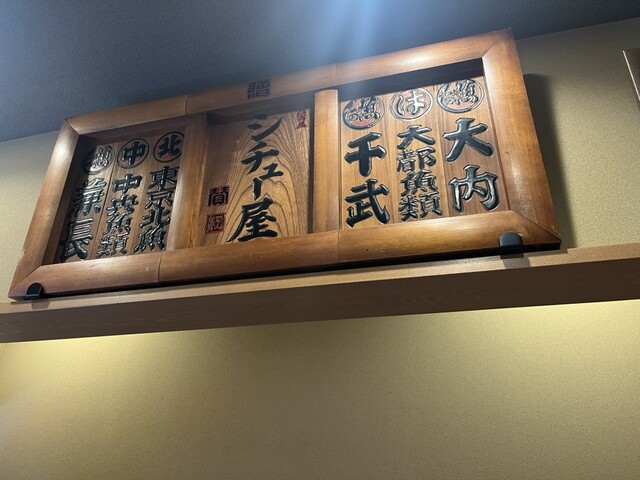 贈
大内
は
大都魚類
千武
シチュー屋
北
東京北魚
中
中央魚類